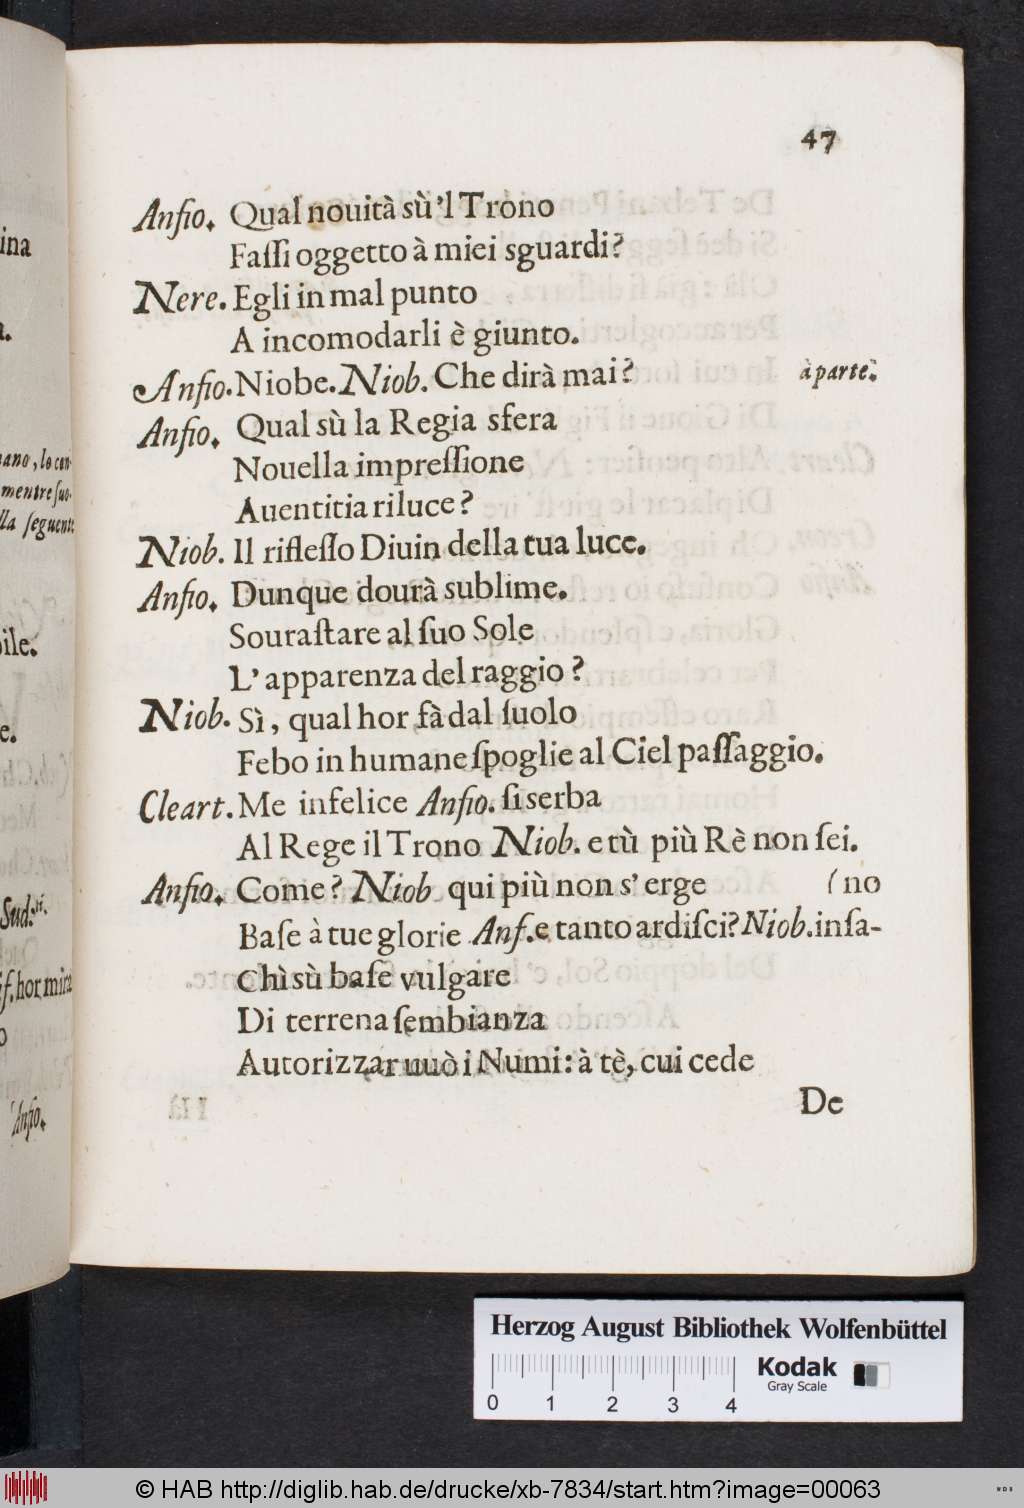 47
Anfio. Qual nouità sù 'l Trono
Faſſi oggetto à miei sguardi?
Nere. Egli in mal punto
A incomodarli è giunto.
Anfio. Niobe. Niob. Che dirà mai? à parte.
Anfio. Qual sù la Regia sfera
Nouella impreſſione
Auentitia riluce?
Niob. Il rifleſſo Diuin della tua luce.
Anfio. Dunque dourà sublime.
Souraſtare al ſuo Sole
L' apparenza del raggio?
Niob. Sì, qual hor fà dal ſuolo
Febo in humane ſpoglie al Ciel paſſaggio.
Cleart. Me infelice Anfio. ſi serba
Al Rege il Trono Niob. e tù più Rè non ſei.
Anfio. Come? Niob qui più non s' erge (no
Baſe à tue glorie Anf. e tanto ardiſci? Niob. inſa-
Chì sù baſe vulgare
Di terrena ſembianza
Autorizzar uuò i Numi: à tè, cui cede
De
ina
a.
mano, lo con-
mentre ſuo-
lla ſeguente
bile.
e.
Sud:ti.
if. hor mira
o
Anfio.
Herzog August Bibliothek Wolfenbüttel
Kodak
Gray Scale
0 1 2 3 4
© HAB http://diglib.hab.de/drucke/xb-7834/start.htm?image=00063